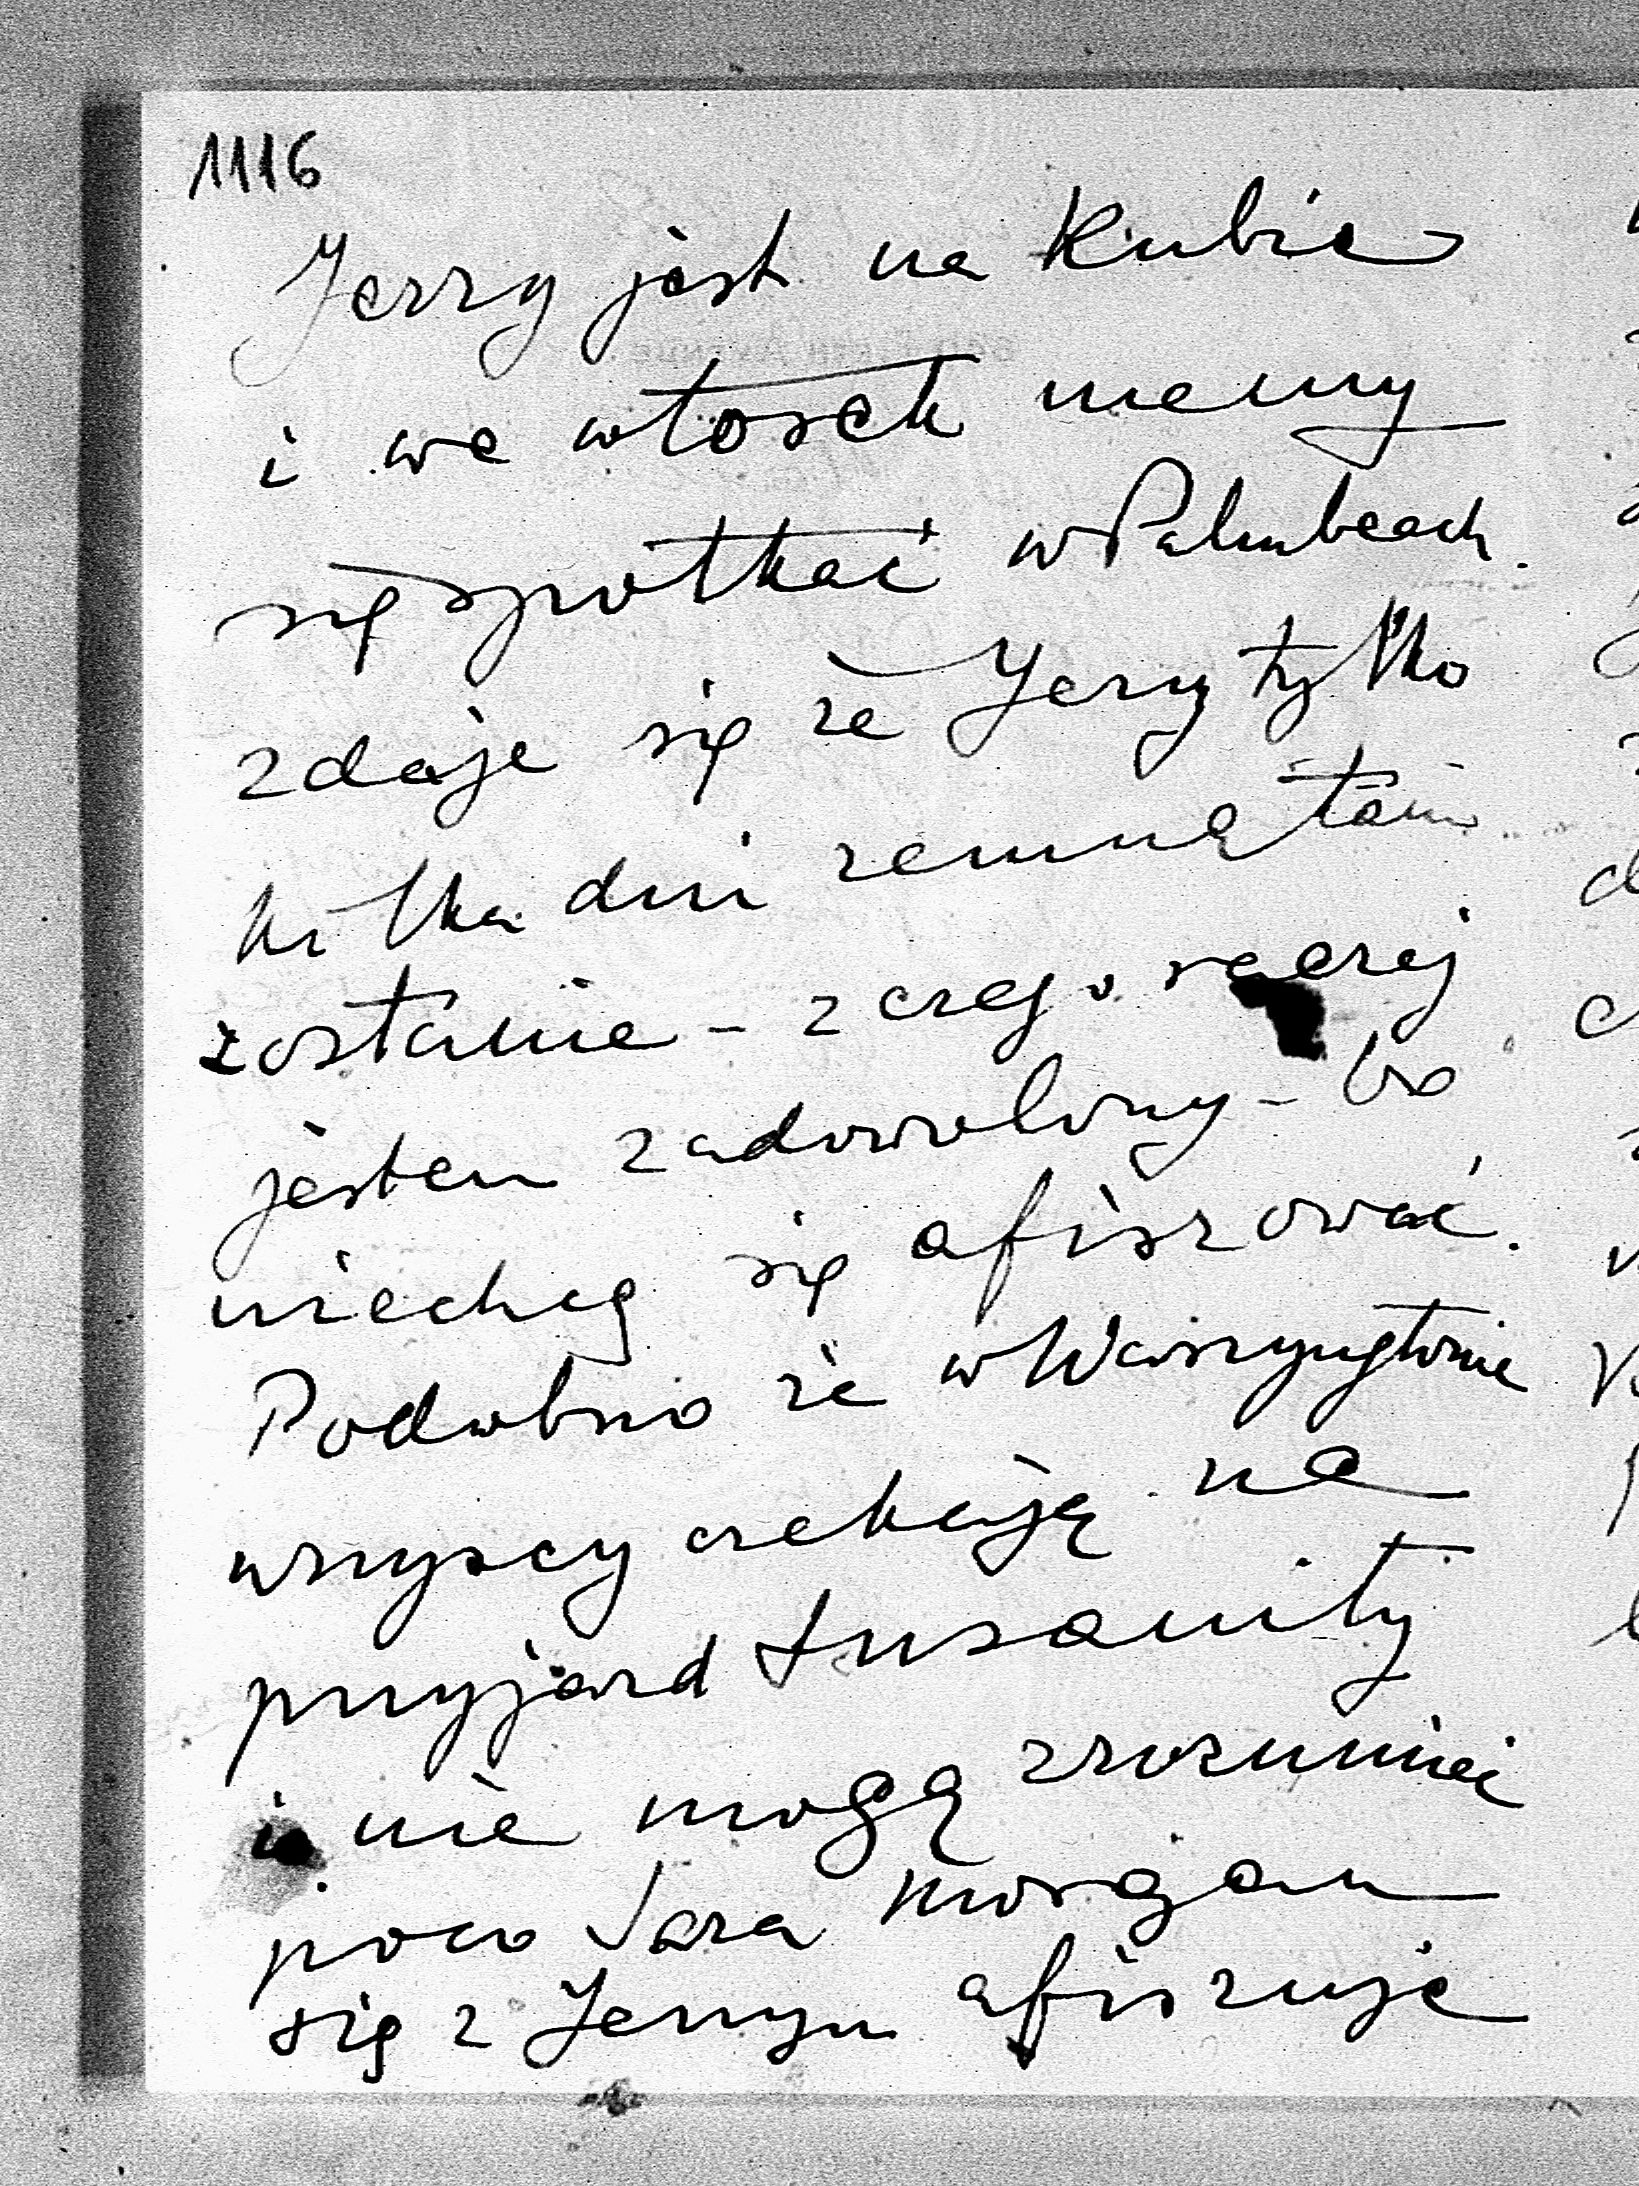 1116
Jerzy jest na Kubie
i we wtorek mamy
się spotkać w Palmbeach.
zdaje się że Jerzy tylko
kilka dni zemną tam
zostanie – z czego raczej
jestem zadowolony – bo
niechcę się afiszować.
Podobno że w Waszyngtonie
wszyscy czekają na
przyjazd
i nie mogą zrozumieć
poco Sara Morgan
się z Jerzym afiszuje